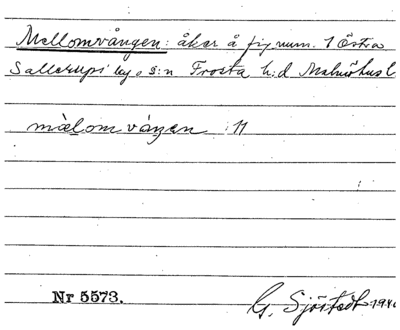 Mellomvången: åker å fig. num. 1 Östra
Sallerups by o s:n Frosta h:d Malmöhus l.
mälom vången 11
Nr 5573.
G. Sjöstedt 194